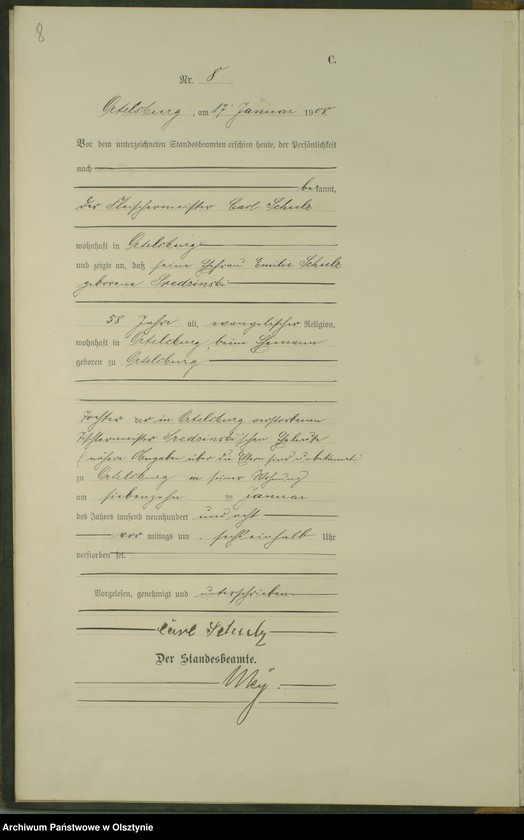 8
C.
Nr. 8
Ortelsburg, am 17 Januar 1908.
Vor dem unterzeichneten Standesbeamten erschien heute, der Persönlichkeit
nach
bekannt,
der Fleischermeister Carl Schulz
wohnhaft in Ortelsburg
und zeigte an, daß seine Ehefrau Emilie Schulz
geborene Sredzinski
58 Jahre alt, evangelischer Religion,
wohnhaft in Ortelsburg, beim Ehemann
geboren zu Ortelsburg
Tochter der in Ortelsburg verstorbenen
Sredzinski'schen Eheleute
(nähere Angaben über die Eltern sind unbekannt)
zu Ortelsburg in seiner Wohnung
am siebenzehn ten Januar
des Jahres tausend neunhundert und acht
vor mittags um sechseinhalb Uhr
verstorben sei.
Vorgelesen, genehmigt und unterschrieben
Carl Schulz
Der Standesbeamte.
Archiwum Państwowe w Olsztynie